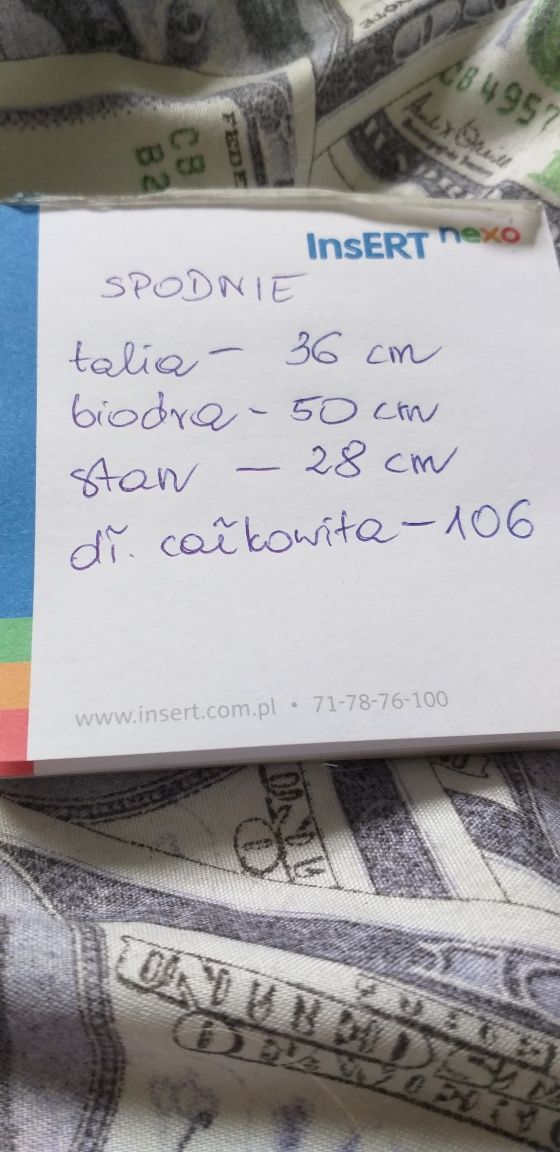 CB 4951
FEDE
CB
B2
InsERT nexo
SPODNIE
talia - 36 cm
biodra - 50 cm
stan - 28 cm
dł. całkowita - 106
www.insert.com.pl • 71-78-76-100